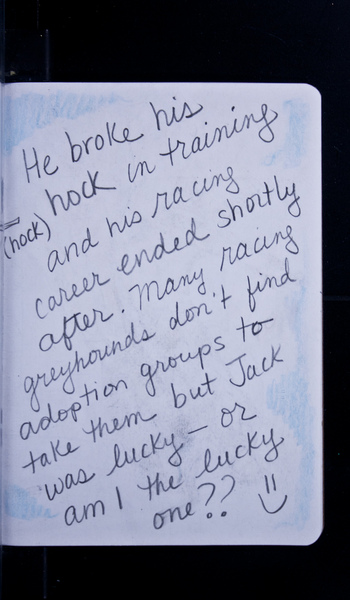 He broke his
hock in training
(hock)
and his racing
career ended shortly
after. Many racing
greyhounds don't find
adoption groups to
take them but Jack
was lucky – or
am I the lucky
one?? :)